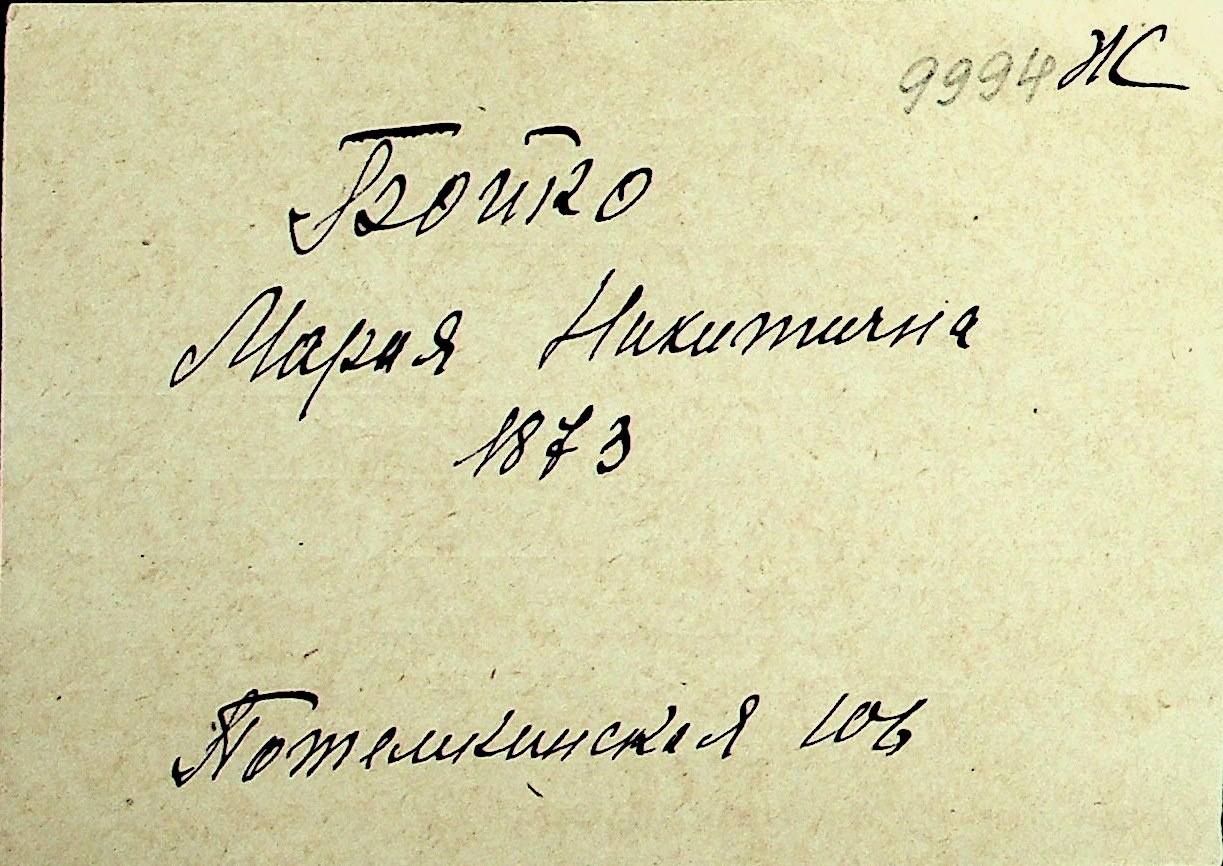 9994 Ж
Бойко
Мария Никитична
1873
Потемкинская 106